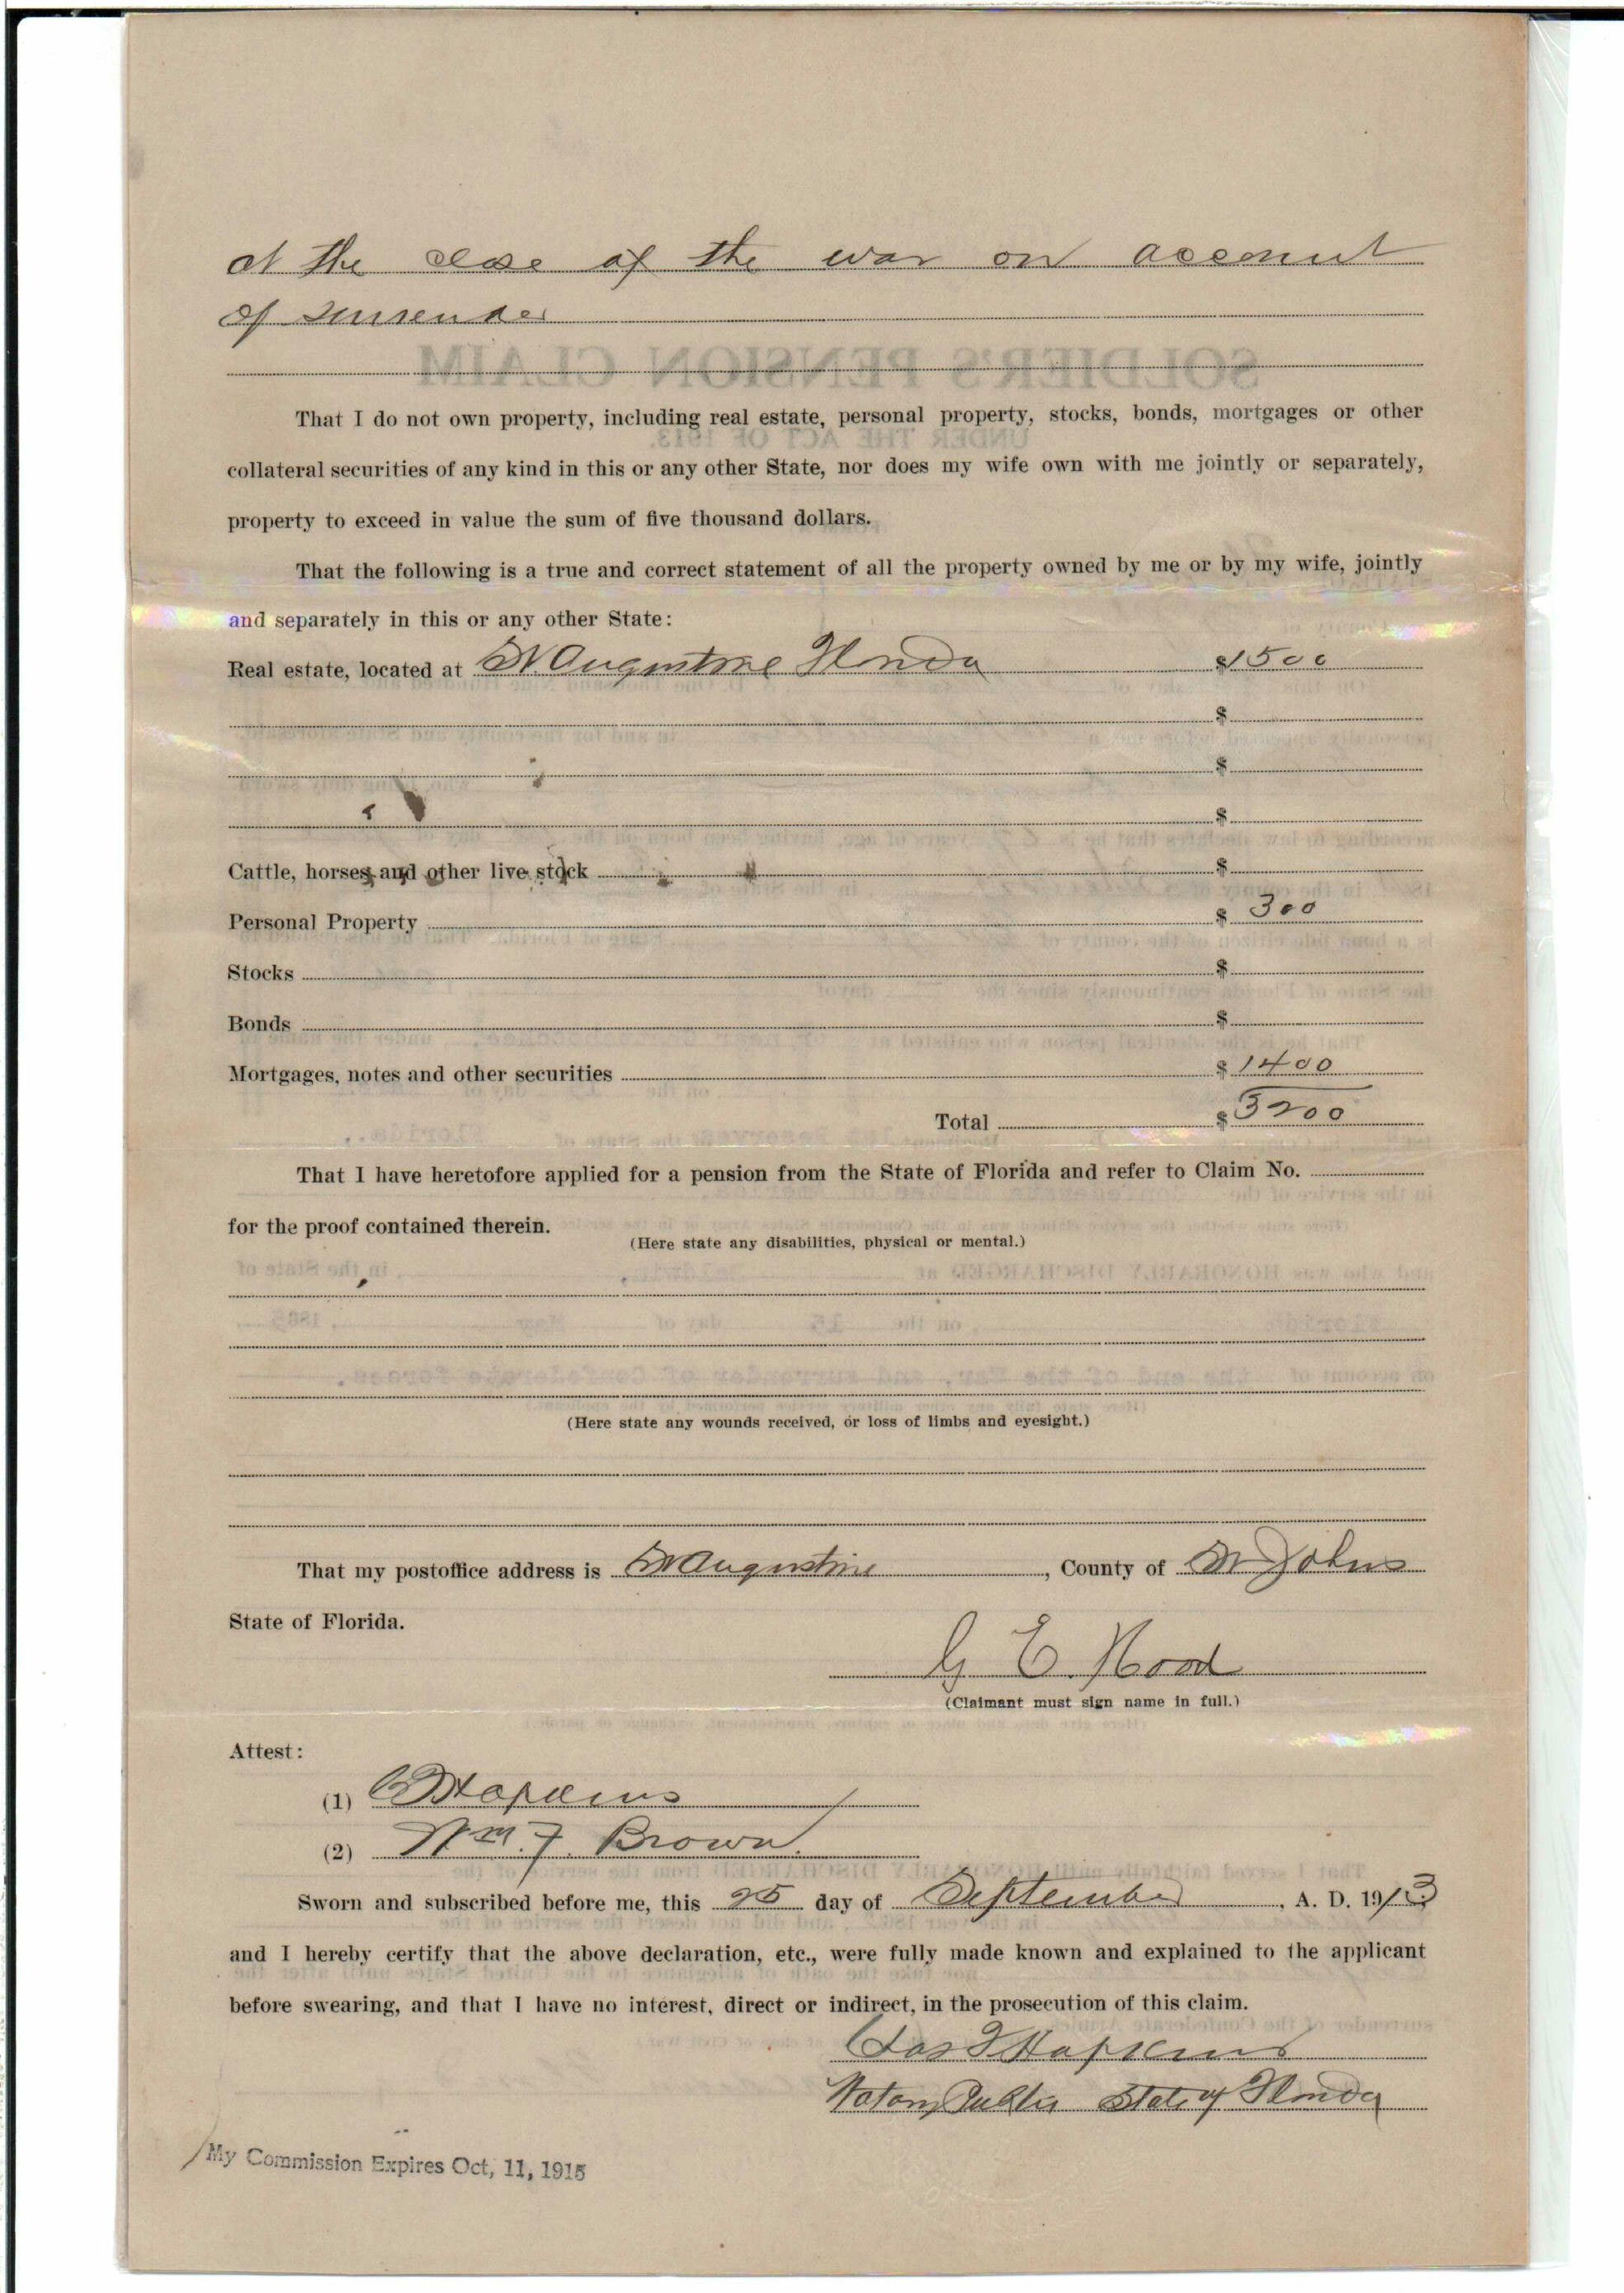 at the close of the war on account
of surrender
That I do not own property, including real estate, personal property, stocks, bonds, mortgages or other
collateral securities of any kind in this or any other State, nor does my wife own with me jointly or separately,
property to exceed in value the sum of five thousand dollars.
That the following is a true and correct statement of all the property owned by me or by my wife, jointly
and separately in this or any other State:
Real estate, located at St Augustine Florida $1500
$
$
$
Cattle, horses, and other live stock $
Personal Property $ 300
Stocks $
Bonds $
Mortgages, notes and other securities $ 1400
Total $ 3200
That I have heretofore applied for a pension from the State of Florida and refer to Claim No.
for the proof contained therein.
(Here state any disabilities, physical or mental.)
(Here state any wounds received, or loss of limbs and eyesight.)
That my postoffice address is St Augustine, County of St Johns
State of Florida.
G E. Hood
(Claimant must sign name in full.)
Attest:
(1) Hopkins
(2) Wm. F. Brown.
Sworn and subscribed before me, this 25 day of September, A. D. 1913
and I hereby certify that the above declaration, etc., were fully made known and explained to the applicant
before swearing, and that I have no interest, direct or indirect, in the prosecution of this claim.
Chas F Hopkins
Notary Public State of Florida
My Commission Expires Oct, 11, 1915